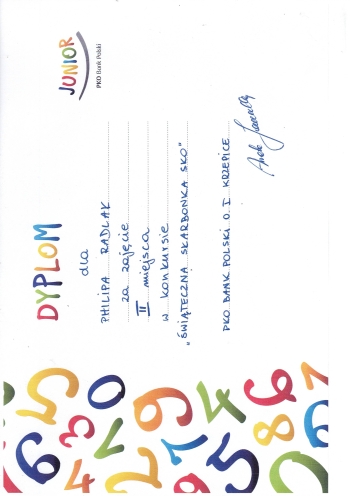 JUNIOR
PKO Bank Polski
DYPLOM
dla
PHILIPA RADLAK
za zajęcie
II miejsca
w konkursie
"ŚWIĄTECZNA SKARBONKA SKO"
PKO BANK POLSKI O. I KRZEPICE